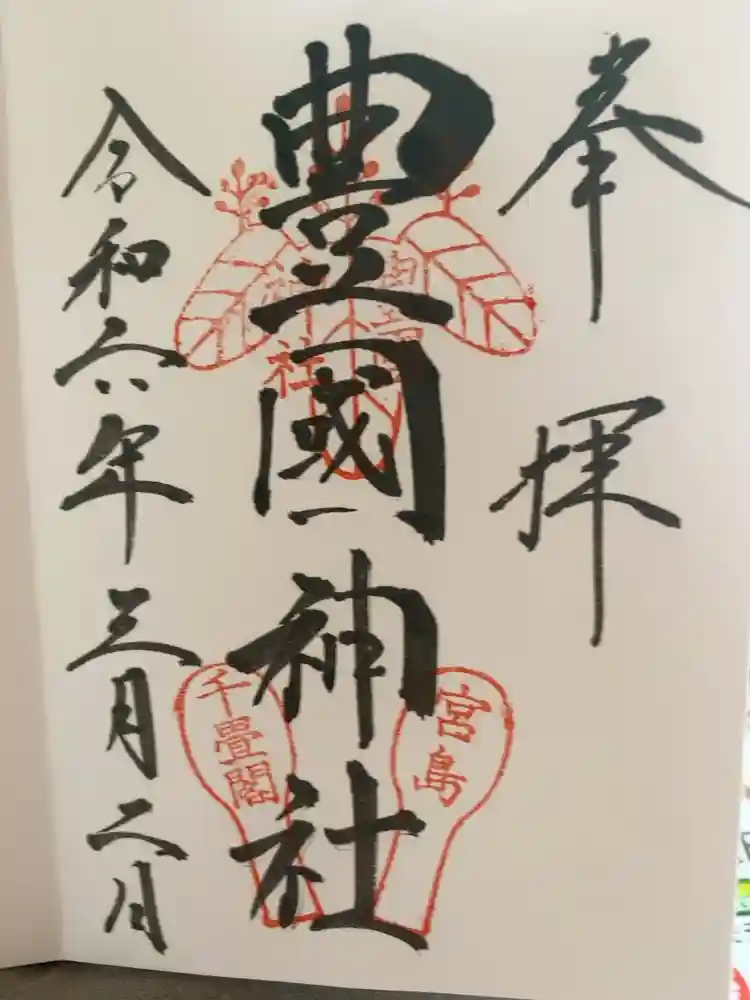 奉拝
豊國神社
令和六年三月二月
宮島
千畳閣
社